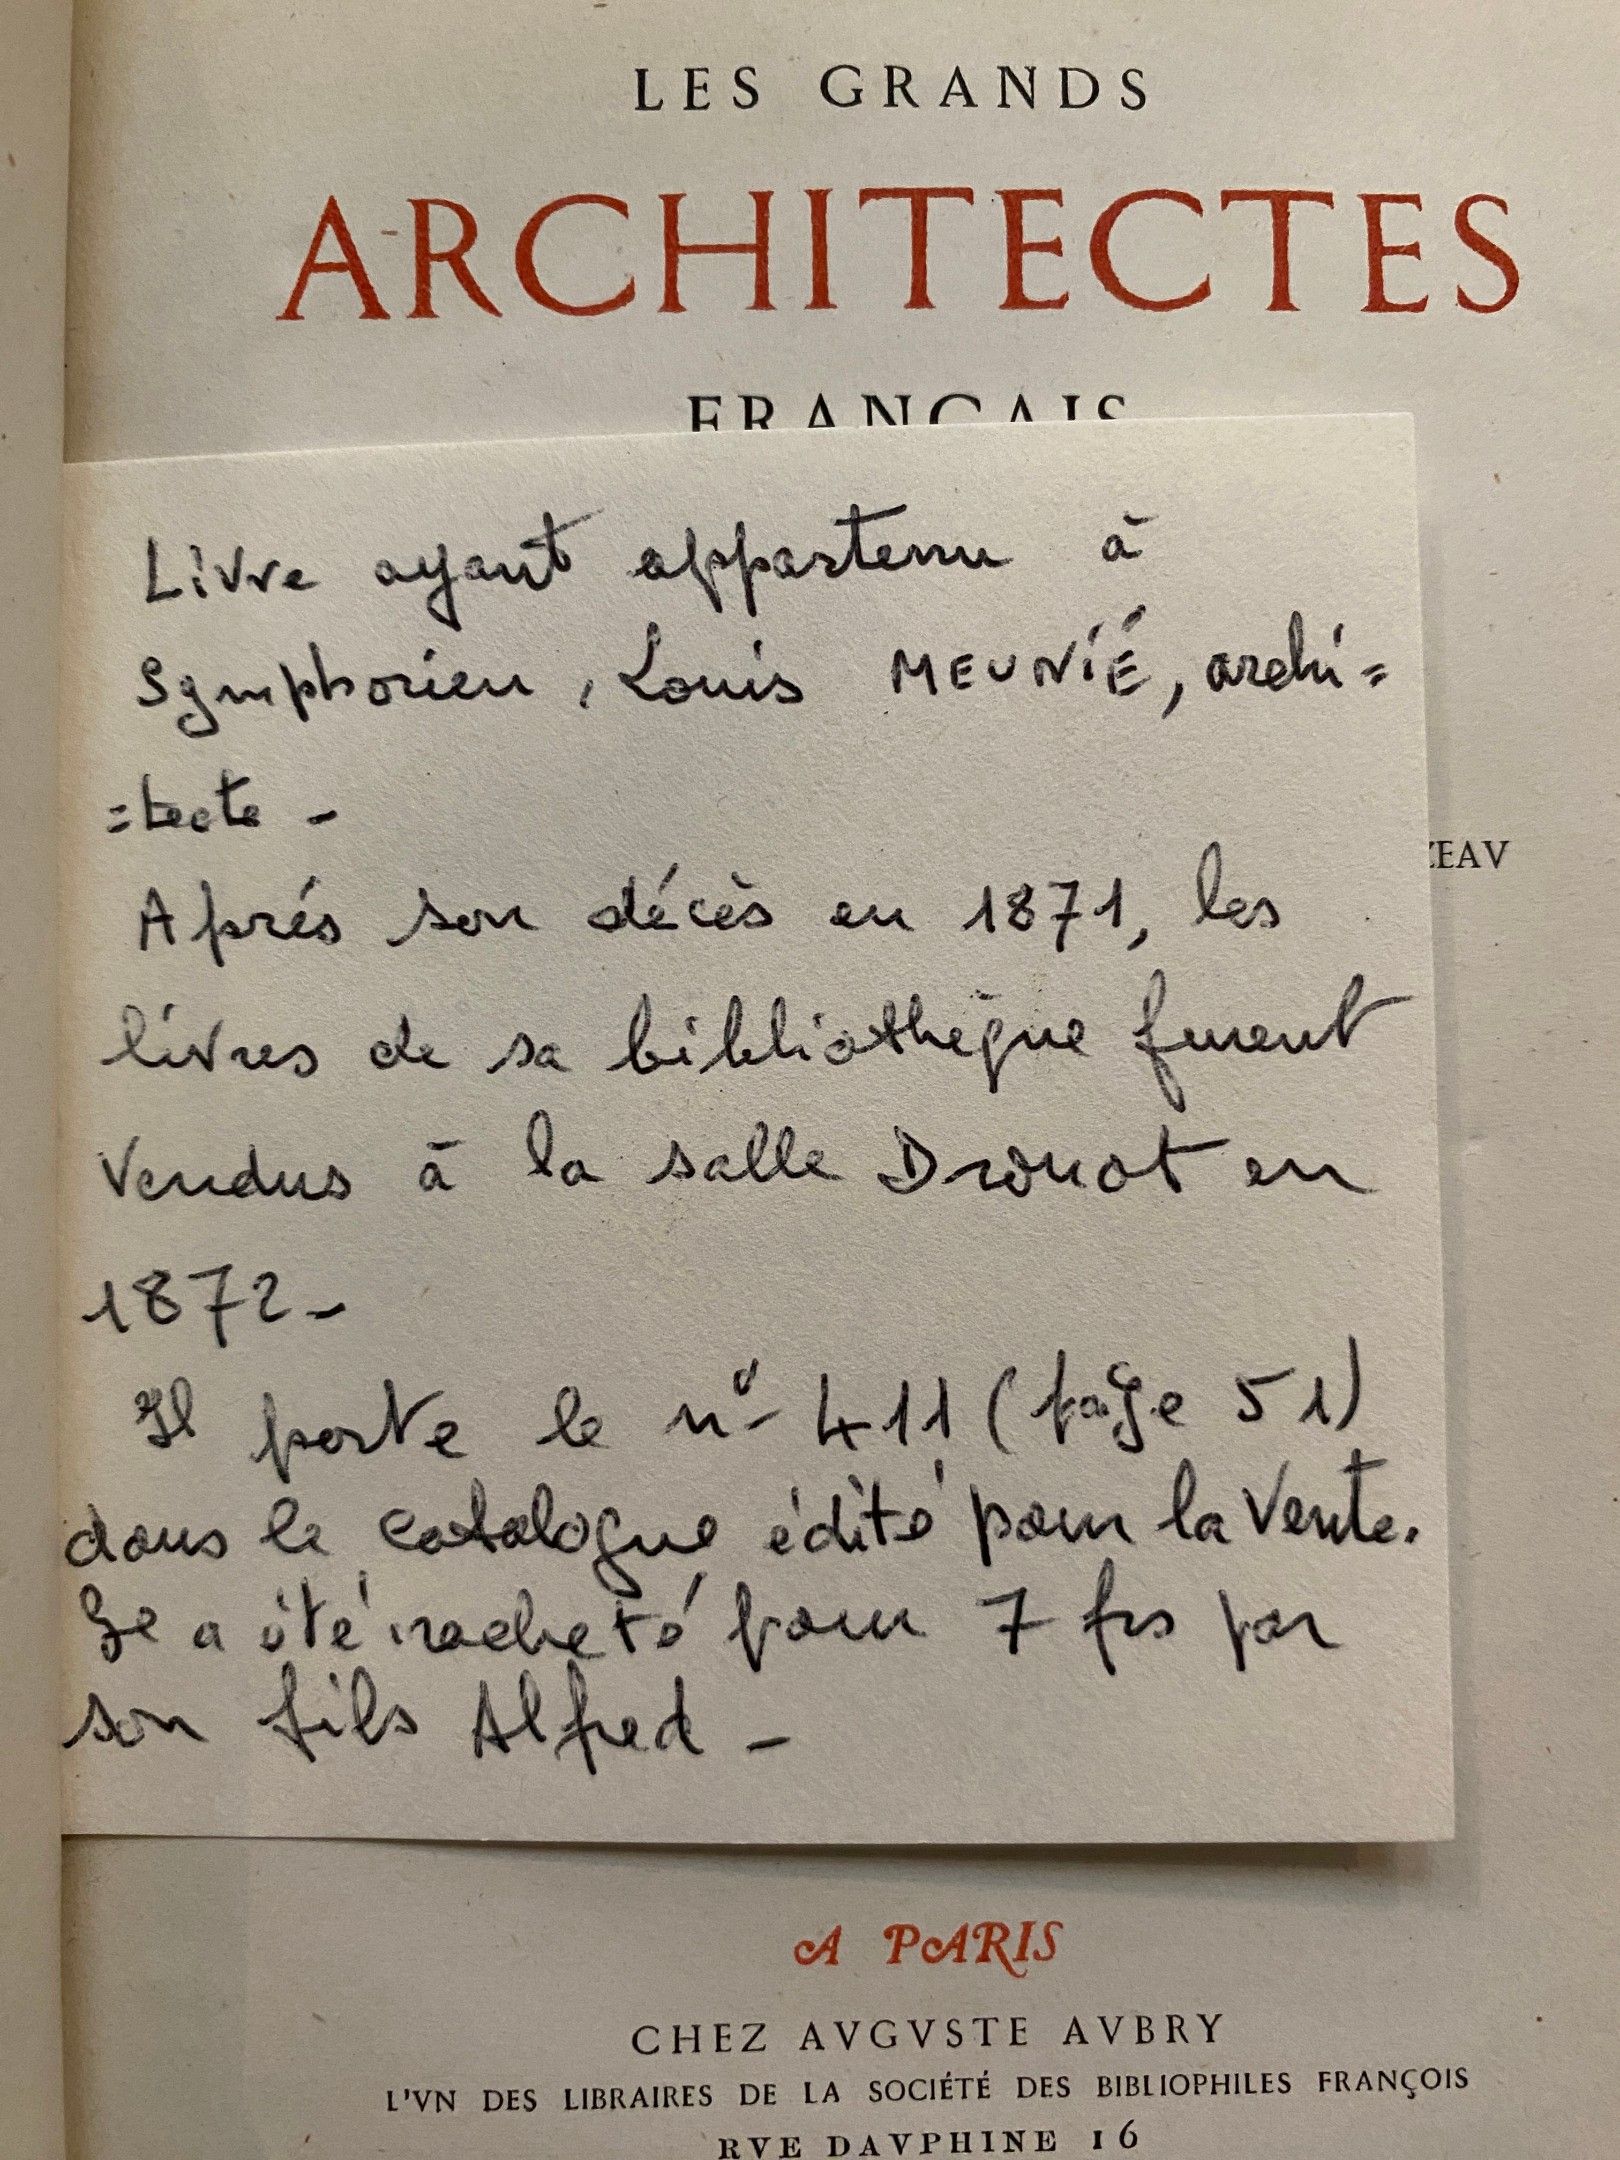 LES GRANDS
ARCHITECTES
FRANÇAIS
Livre ayant appartenu à
Symphorien, Louis MEUNIÉ, archi=
=tecte -
Aprés son décès en 1871, les
livres de sa bibliothèque furent
Vendus à la salle Drouot en
1872 -
Il porte le n° 411 (page 51)
dans le catalogue édité pour la Vente.
a été racheté pour 7 frs par
son fils Alfred -
ZEAV
A PARIS
CHEZ AVGVSTE AVBRY
L'VN DES LIBRAIRES DE LA SOCIÉTÉ DES BIBLIOPHILES FRANÇOIS
RVE DAVPHINE 16